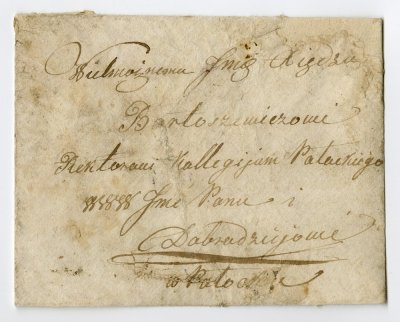 Wielmożnemu Jmę Xiędzu
Bartoszewiczowi
Rektorowi Kollegijum Połockiego
WWWW Jmę Panu i
Dobrodziejowi
w Połocku